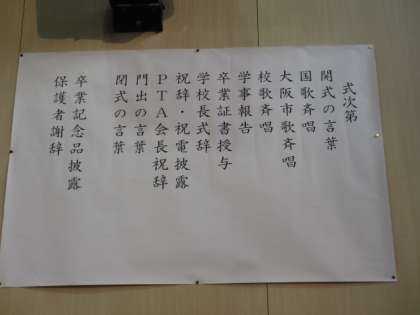 式次第
開式の言葉
国歌斉唱
大阪市歌斉唱
校歌斉唱
学事報告
卒業証書授与
学校長式辞
祝辞・祝電披露
PTA会長祝辞
門出の言葉
閉式の言葉
卒業記念品披露
保護者謝辞